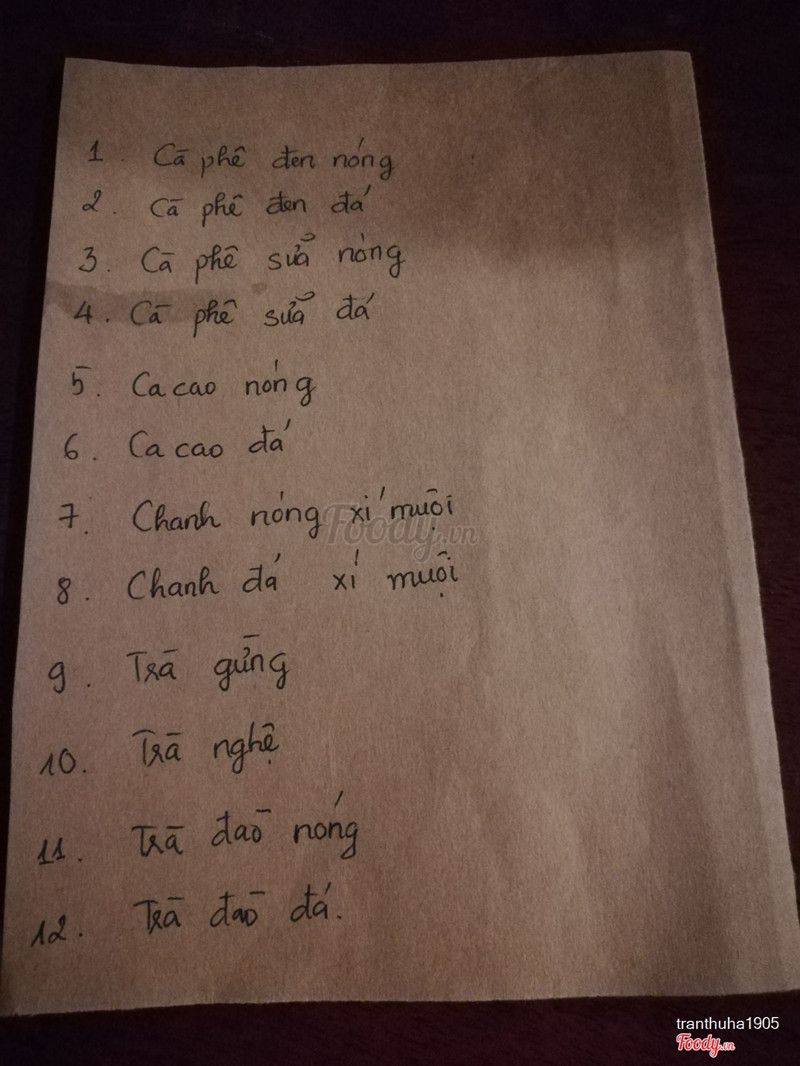 1. Cà phê đen nóng
2. Cà phê đen đá
3. Cà phê sữa nóng
4. Cà phê sữa đá
5. Ca cao nóng
6. Ca cao đá
7. Chanh nóng xí muội
Foody.vn
8. Chanh đá xí muội
9. Trà gừng
10. Trà nghệ
11. Trà đào nóng
12. Trà đào đá.
tranthuha1905
Foody.vn